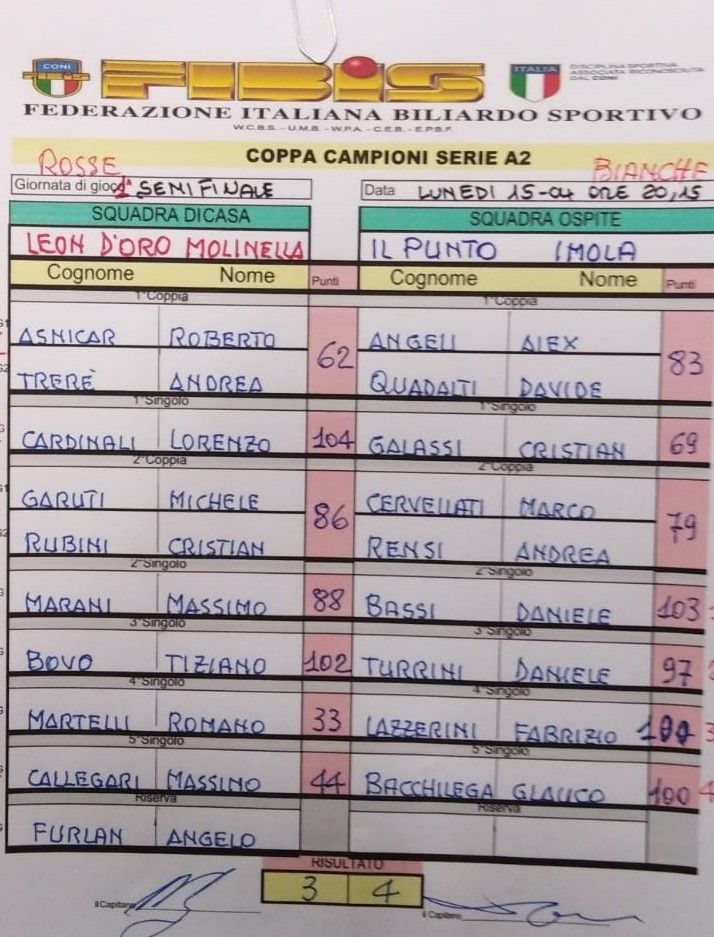 CONI
FIBIS
ITALIA
DISCIPLINA SPORTIVA
ASSOCIATA RICONOSCIUTA
DAL CONI
FEDERAZIONE ITALIANA BILIARDO SPORTIVO
W.C.B.S. - U.M.B. - W.P.A. - C.E.B. - E.P.B.F.
ROSSE COPPA CAMPIONI SERIE A2 BIANCHE
Giornata di gioco 1ª SEMIFINALE Data LUNEDI 15-04 ORE 20,15
SQUADRA DI CASA SQUADRA OSPITE
LEON D'ORO MOLINELLA IL PUNTO IMOLA
Cognome Nome Punti Cognome Nome Punti
1°Coppia 1°Coppia
ASNICAR ROBERTO 62 ANGELI ALEX 83
TRERÈ ANDREA QUADALTI DAVIDE
1°Singolo 1°Singolo
CARDINALI LORENZO 104 GALASSI CRISTIAN 69
2°Coppia 2°Coppia
GARUTI MICHELE 86 CERVELLATI MARCO 79
RUBINI CRISTIAN RENSI ANDREA
2°Singolo 2°Singolo
MARANI MASSIMO 88 BASSI DANIELE 103
3°Singolo 3°Singolo
BOVO TIZIANO 102 TURRINI DANIELE 97
4°Singolo 4°Singolo
MARTELLI ROMANO 33 LAZZERINI FABRIZIO 100 3
5°Singolo 5°Singolo
CALLEGARI MASSIMO 44 BACCHILEGA GLAUCO 100 4
Riserva Riserva
FURLAN ANGELO
RISULTATO
3 4
Il Capitano Il Capitano